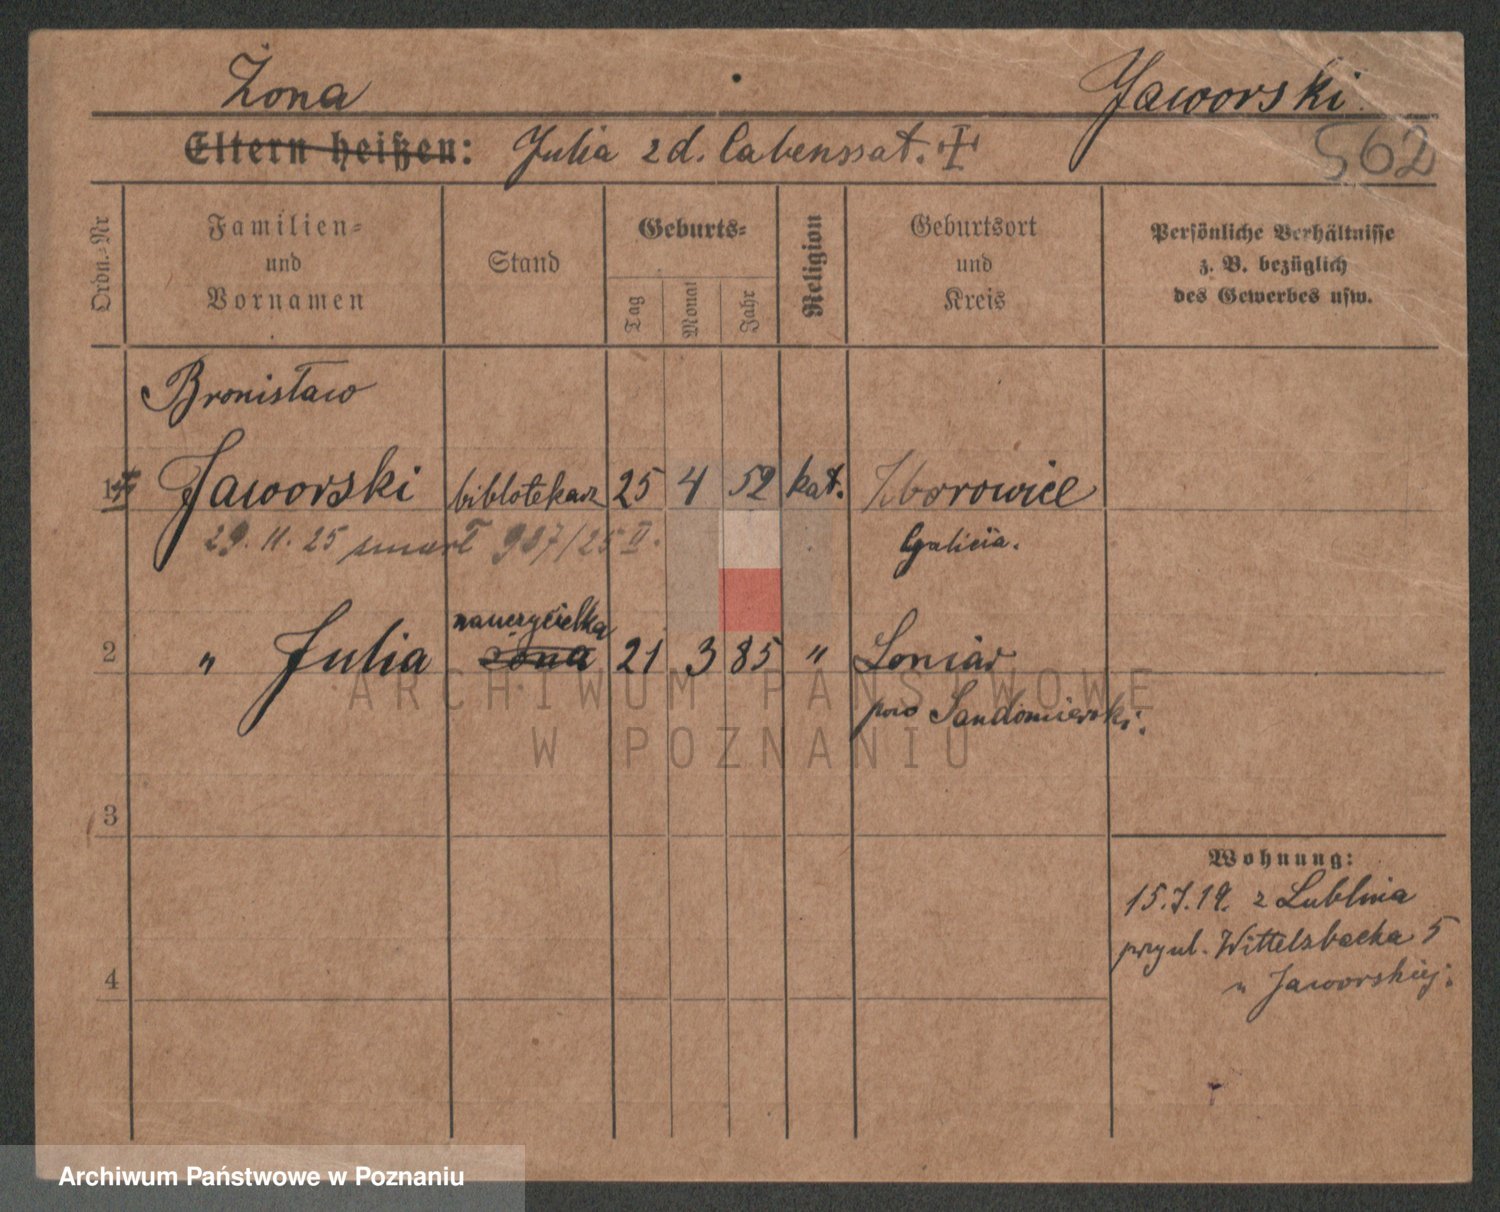 Żona
Jaworski
562
Eltern heißen: Julia z d. Labenssat. ‡
Ordn.-Nr
Familien-
und
Vornamen
Stand
Geburts-
Tag
Monat
Jahr
Religion
Geburtsort
und
Kreis
Persönliche Verhältnisse
z. B. bezüglich
des Gewerbes usw.
Bronisław
1 Jaworski bibliotekarz 25 4 52 kat. Zborowice
29. 11. 25 zmarł 937/25 II. Galicia.
nauczycielka
2 " Julia żona 21 3 85 " Loniów
pow Sandomierski.
ARCHIWUM PAŃSTWOWE
W POZNANIU
3
Wohnung:
15.7.19. z Lublina
przy ul. Wittelsbacha 5
u Jaworskiej.
4
Archiwum Państwowe w Poznaniu